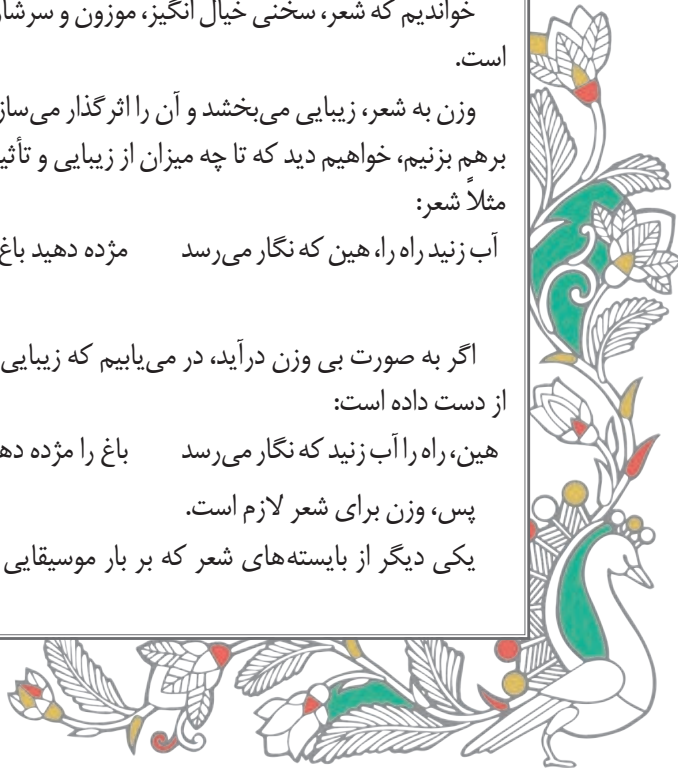 خواندیم که شعر، سخنی خیال انگیز، موزون و سرشار
است.
وزن به شعر، زیبایی می‌بخشد و آن را اثرگذار می‌ساز
برهم بزنیم، خواهیم دید که تا چه میزان از زیبایی و تأثی
مثلاً شعر:
آب زنید راه را، هین که نگار می‌رسد مژده دهید باغ
اگر به صورت بی وزن درآید، در می‌یابیم که زیبایی
از دست داده است:
هین، راه را آب زنید که نگار می‌رسد باغ را مژده ده
پس، وزن برای شعر لازم است.
یکی دیگر از بایسته‌های شعر که بر بار موسیقایی